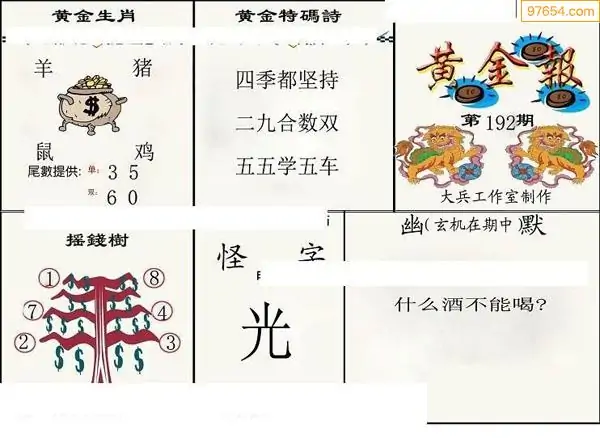 97654.com
黄金生肖
羊 猪
$
鼠 鸡
尾數提供: 单: 3 5
双: 6 0
黄金特碼詩
四季都坚持
二九合数双
五五学五车
黄金報
第192期
大兵工作室制作
摇錢樹
1 8
7 4
2 3
怪 字
光
幽(玄机在期中)默
什么酒不能喝?